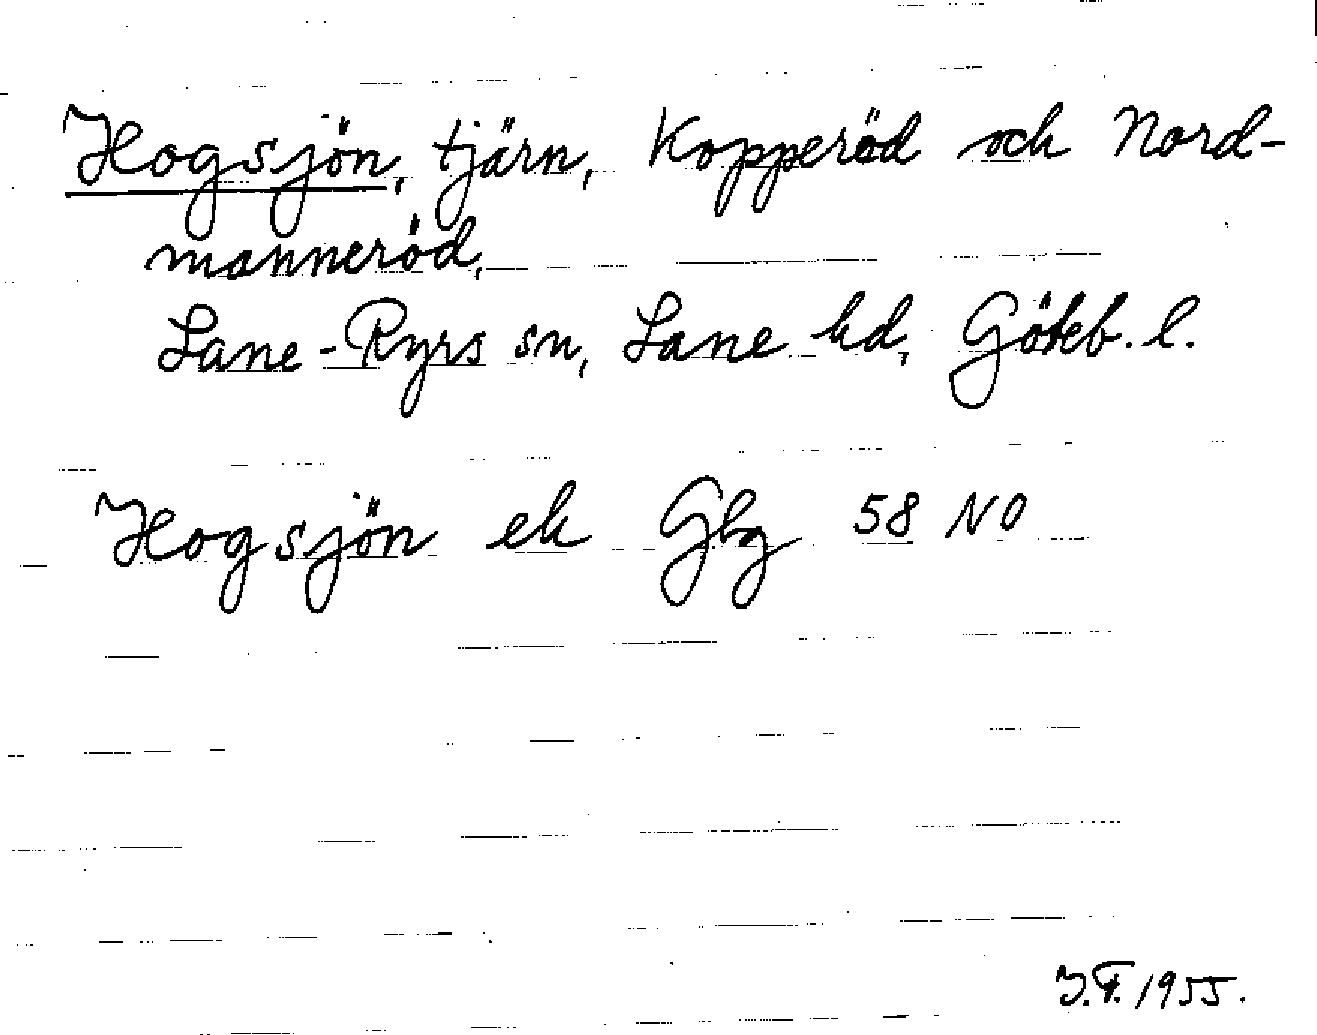 Hogsjön, tjärn, Kopperöd och Nord-
manneröd,
Lane-Ryrs sn, Lane hd, Göteb. l.
Hogsjön ek Gbg 58 NO
J.F. 1955.